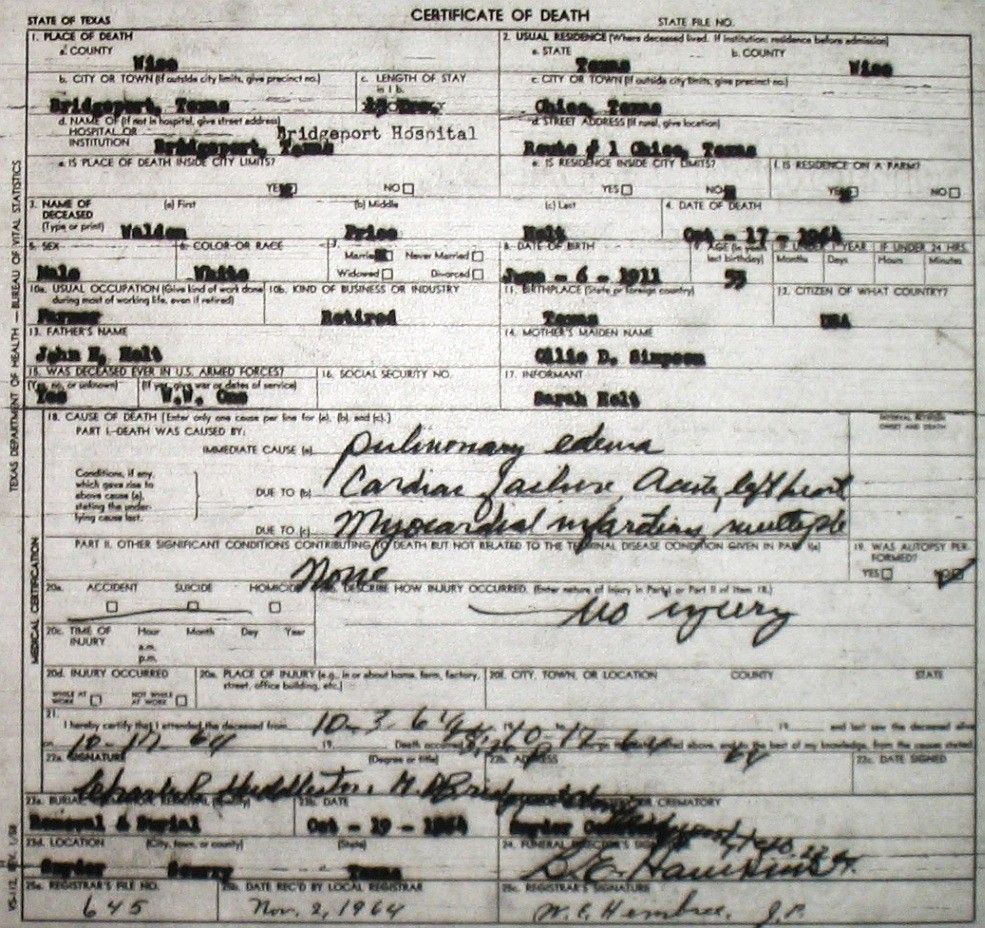 CERTIFICATE OF DEATH
STATE OF TEXAS
STATE FILE NO.
1. PLACE OF DEATH
a. COUNTY
Wise
2. USUAL RESIDENCE (Where deceased lived. If institution: residence before admission)
a. STATE
Texas
b. COUNTY
Wise
b. CITY OR TOWN (If outside city limits, give precinct no.)
Bridgeport, Texas
c. LENGTH OF STAY
in 1 b.
c. CITY OR TOWN (If outside city limits, give precinct no.)
Chico, Texas
d. NAME OF (If not in hospital, give street address)
HOSPITAL OR
INSTITUTION
Bridgeport Hospital
Bridgeport, Texas
d. STREET ADDRESS (If rural, give location)
Route # 1 Chico, Texas
e. IS PLACE OF DEATH INSIDE CITY LIMITS?
YES NO
e. IS RESIDENCE INSIDE CITY LIMITS?
YES NO
f. IS RESIDENCE ON A FARM?
YES NO
3. NAME OF
DECEASED
(Type or print)
(a) First
Weldon
(b) Middle
Price
(c) Last
Holt
4. DATE OF DEATH
Oct - 17 - 1964
5. SEX
Male
6. COLOR OR RACE
White
7.
Married Never Married
Widowed Divorced
8. DATE OF BIRTH
June - 6 - 1911
9. AGE (In years
last birthday)
53
IF UNDER 1 YEAR
Months Days
IF UNDER 24 HRS.
Hours Minutes
10a. USUAL OCCUPATION (Give kind of work done
during most of working life, even if retired)
Farmer
10b. KIND OF BUSINESS OR INDUSTRY
Retired
11. BIRTHPLACE (State or foreign country)
Texas
12. CITIZEN OF WHAT COUNTRY?
USA
13. FATHER'S NAME
John H. Holt
14. MOTHER'S MAIDEN NAME
Ollie D. Simpson
15. WAS DECEASED EVER IN U.S. ARMED FORCES?
(Yes, no, or unknown)
Yes
(If yes, give war or dates of service)
W.W. One
16. SOCIAL SECURITY NO.
17. INFORMANT
Sarah Holt
18. CAUSE OF DEATH [Enter only one cause per line for (a), (b), and (c).]
INTERVAL BETWEEN
ONSET AND DEATH
PART I.—DEATH WAS CAUSED BY:
IMMEDIATE CAUSE (a) pulmonary edema
Conditions, if any,
which gave rise to
above cause (a),
stating the under-
lying cause last.
DUE TO (b) Cardiac failure Acute, left heart
DUE TO (c) Myocardial infarctions, multiple
PART II. OTHER SIGNIFICANT CONDITIONS CONTRIBUTING TO DEATH BUT NOT RELATED TO THE TERMINAL DISEASE CONDITION GIVEN IN PART I(a)
None
19. WAS AUTOPSY PER-
FORMED?
YES NO
20a. ACCIDENT SUICIDE HOMICIDE
DESCRIBE HOW INJURY OCCURRED. (Enter nature of injury in Part I or Part II of item 18.)
no injury
20c. TIME OF
INJURY
Hour Month Day Year
a.m.
p.m.
20d. INJURY OCCURRED
WHILE AT
WORK
NOT WHILE
AT WORK
20e. PLACE OF INJURY (e.g., in or about home, farm, factory,
street, office building, etc.)
20f. CITY, TOWN, OR LOCATION COUNTY STATE
21.
I hereby certify that I attended the deceased from 10-3 64 19 to 10-17-64 19 and last saw the deceased alive
on 10-17-64 19 Death occurred above, and to the best of my knowledge, from the causes stated.
22a. SIGNATURE (Degree or title)
Huddleston, M.D.
22b. ADDRESS
22c. DATE SIGNED
23a. BURIAL, CREMATION, REMOVAL (Specify)
Removal & Burial
23b. DATE
Oct - 19 - 1964
OR CREMATORY
Snyder
23d. LOCATION (City, town, or county) (State)
Snyder Scurry Texas
24. FUNERAL DIRECTOR'S SIGNATURE
25a. REGISTRAR'S FILE NO.
645
25b. DATE REC'D BY LOCAL REGISTRAR
Nov. 2, 1964
25c. REGISTRAR'S SIGNATURE
W. E. Hembree, J.P.
TEXAS DEPARTMENT OF HEALTH — BUREAU OF VITAL STATISTICS
MEDICAL CERTIFICATION
VS-112, REV. 1/58